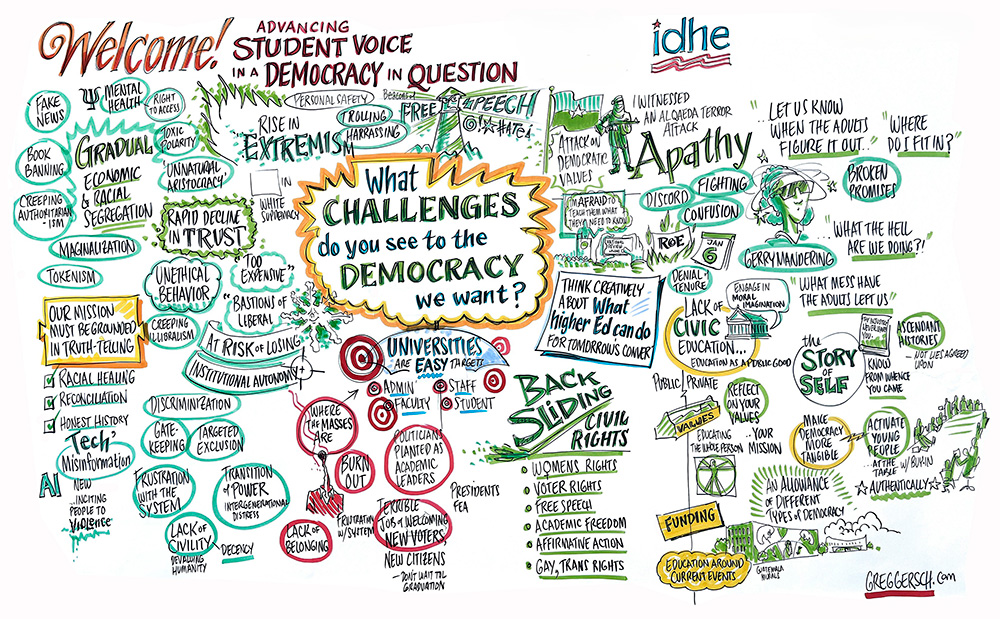 Welcome!
ADVANCING
STUDENT VOICE
IN A DEMOCRACY IN QUESTION
idhe
FAKE
NEWS
MENTAL
HEALTH
RIGHT
TO ACCESS!
BOOK
BANNING
GRADUAL
ECONOMIC
& RACIAL
SEGREGATION
TOXIC
POLARITY
UNNATURAL
ARISTOCRACY
CREEPING
AUTHORITARIAN
ISM
MAGINALIZATION
TOKENISM
RAPID DECLINE
IN TRUST
RISE IN
EXTREMISM
PERSONAL SAFETY
TROLLING
HARRASSING
IN
WHITE
SUPREMACY
Beacons of
FREE SPEECH
HATE!
ATTACK ON
DEMOCRATIC
VALUES
I WITNESSED
AN ALQAEDA TERROR
ATTACK
Apathy
"...LET US KNOW
WHEN THE ADULTS
FIGURE IT OUT..."
"WHERE
DO I FIT IN?"
BROKEN
PROMISES
I'M AFRAID TO
TEACH THEM WHAT
THEY NEED TO KNOW
DISCORD
FIGHTING
CONFUSION
ROE
JAN
6
GERRYMANDERING
"...WHAT THE HELL
ARE WE DOING?!"
"WHAT MESS HAVE
THE ADULTS LEFT US"
What
CHALLENGES
do you see to the
DEMOCRACY
we want?
UNETHICAL
BEHAVIOR
"TOO
EXPENSIVE"
"BASTIONS OF
LIBERAL
CREEPING
ILLIORALISM
AT RISK OF LOSING
INSTITUTIONAL AUTONOMY
OUR MISSION
MUST BE GROUNDED
IN TRUTH-TELLING
RACIAL HEALING
RECONCILIATION
HONEST HISTORY
UNIVERSITIES
ARE EASY TARGETS
ADMIN
STAFF
FACULTY
STUDENT
THINK CREATIVELY
ABOUT What
higher Ed can do
FOR TOMORROWS CONVER
DENIAL
TENURE
LACK OF
CIVIC
EDUCATION...
EDUCATION AS A PUBLIC GOOD
ENGAGE IN
MORAL
IMAGINATION
the
STORY
of
SELF
KNOW
FROM WHENCE
YOU CAME
ASCENDANT
HISTORIES
— NOT LIES AGREED
UPON
DISCRIMINIZATION
GATE-
KEEPING
TARGETED
EXCLUSION
Tech'
Misinformation
AI
NEW
...INCITING
PEOPLE TO
Violence
FRUSTRATION
WITH THE
SYSTEM
TRANSITION
OF POWER
INTERGENERATIONAL
DISTRESS
LACK OF
CIVILITY
DEVALUING
HUMANITY
DECENCY
WHERE
THE MASSES
ARE
BURN
OUT
LACK OF
BELONGING
FRUSTRATION
W/SYSTEM
POLITICIANS
PLANTED AS
ACADEMIC
LEADERS
PRESIDENTS
FEA
TERRIBLE
JOB of WELCOMING
NEW VOTERS,
NEW CITIZENS
— DON'T WAIT TIL
GRADUATION
BACK
SLIDING
CIVIL
RIGHTS
WOMENS RIGHTS
VOTER RIGHTS
FREE SPEECH
ACADEMIC FREEDOM
AFFIRMATIVE ACTION
GAY, TRANS RIGHTS
PUBLIC PRIVATE
VALUES
REFLECT
ON YOUR
VALUES
EDUCATING
THE WHOLE PERSON
...YOUR
MISSION
MAKE
DEMOCRACY
MORE
TANGIBLE
ACTIVATE
YOUNG
PEOPLE
AT THE
TABLE W/ BUY IN
AUTHENTICALLY
AN ALLOWANCE
OF DIFFERENT
TYPES OF DEMOCRACY
FUNDING
GUATEMALA
MURALS
EDUCATION AROUND
CURRENT EVENTS
GREGGERSCH.com